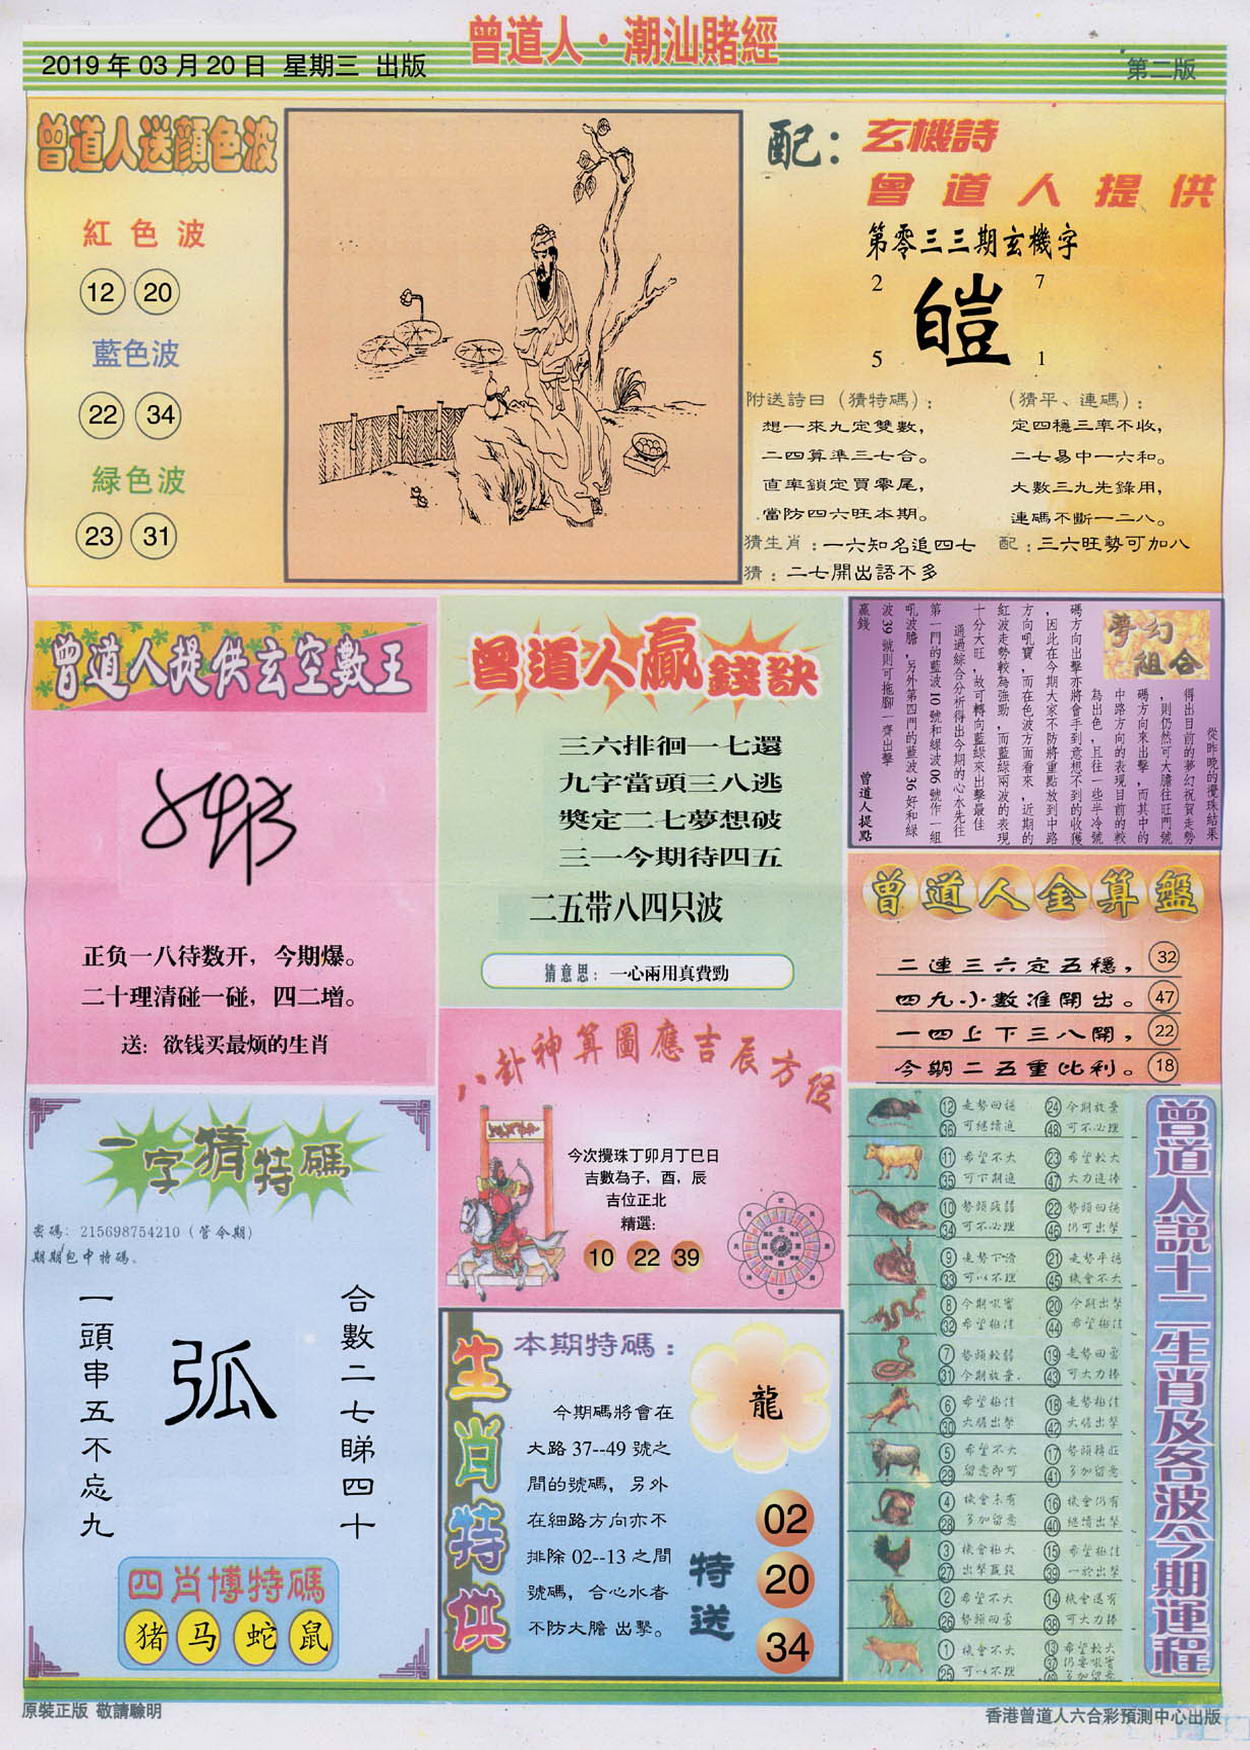 曾道人·潮汕賭經
2019 年 03 月 20 日 星期三 出版
第二版
曾道人送顏色波
紅色波
12 20
藍色波
22 34
緑色波
23 31
配：玄機詩
曾道人提供
第零三三期玄機字
2 7
皚
5 1
附送詩曰（猜特碼）：
想一來九定雙數，
二四算準三七合。
直率鎖定買零尾，
當防四六旺本期。
（猜平、連碼）：
定四穩三率不收，
二七易中一六和。
大數三九先錄用，
連碼不斷一二八。
猜生肖：一六知名追四七 配：三六旺勢可加八
猜：二七開出語不多
曾道人提供玄空數王
正负一八待数开，今期爆。
二十理清碰一碰，四二增。
送：欲钱买最烦的生肖
曾道人贏錢訣
三六排徊一七還
九字當頭三八逃
獎定二七夢想破
三一今期待四五
二五带八四只波
猜意思：一心兩用真費勁
夢幻組合
從昨晚的攪珠結果
得出目前的夢幻祝賀走勢
，則仍然可大膽往旺門號
碼方向來出擊，而其中的
中路方向的表現目前的較
為出色，且往一些半冷號
碼方向出擊亦將會手到意想不到的收獲
，因此在今期大家不防將重點放到中路
方向吼寶，而在色波方面看來，近期的
紅波走勢較為強勁，而藍綠兩波的表現
十分大旺，故可轉向藍綠來出擊最佳
通過綜合分析得出今期的心水先往
第一門的藍波 10 號和綠波 06 號作一組
吼波膽，另外第四門的藍波 36 好和綠
波 39 號則可拖腳一齊出擊
贏錢
曾道人提點
曾道人金算盤
二連三六定五穩，32
四九小數准開出。47
一四上下三八開，22
今期二五重比利。18
八卦神算圖應吉辰方位
今次攪珠丁卯月丁巳日
吉數為子，酉，辰
吉位正北
精選：
10 22 39
一字猜特碼
密碼：215698754210（管今期）
期期包中特碼。
合數二七睇四十
弧
一頭串五不忘九
四肖博特碼
猪 马 蛇 鼠
生肖特供
本期特碼：
龍
今期碼將會在
大路 37--49 號之
間的號碼，另外
在細路方向亦不
排除 02--13 之間
號碼，合心水者
不防大膽 出擊。
特送
02
20
34
曾道人說十二生肖及各波今期運程
12 走勢回穩 24 今期放棄
36 可繼續追 48 可不必理
11 希望不大 23 希望較大
35 可下期追 47 大力追捧
10 勢頭減弱 22 勢頭回穩
34 可不必理 46 仍可出擊
9 走勢下滑 21 走勢平穩
33 可以不理 45 機會不大
8 今期吼寶 20 今期出擊
32 希望極佳 44 希望極佳
7 勢頭較弱 19 走勢回穩
31 今期放棄. 43 可大力捧
6 希望極佳 18 走勢極佳
30 大膽出擊 42 大膽出擊
5 希望不大 17 勢頭轉旺
29 留意即可 41 多加留意
4 機會未有 16 機會仍有
28 多加留意 40 繼續出擊
3 機會極大 15 希望極佳
27 39 一於出擊
2 希望不大 14 機會還有
26 38 可大力捧
1 機會不大 13 希望較大
25 可以不理 37
49 多加留意
原裝正版 敬請驗明
香港曾道人六合彩預測中心出版